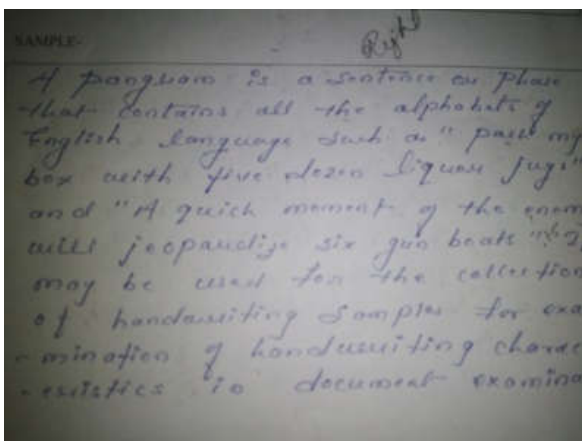 SAMPLE-
Right
A pangram is a sentence or phase
that contains all the alphabets of
English language such as "pack my
box with five dozen liquor jugs"
and "A quick moment of the enem
will jeopardize six gun boats"
may be used for the collection
of handwriting samples for exa
-mination of handwriting charac
-eristics in document examina